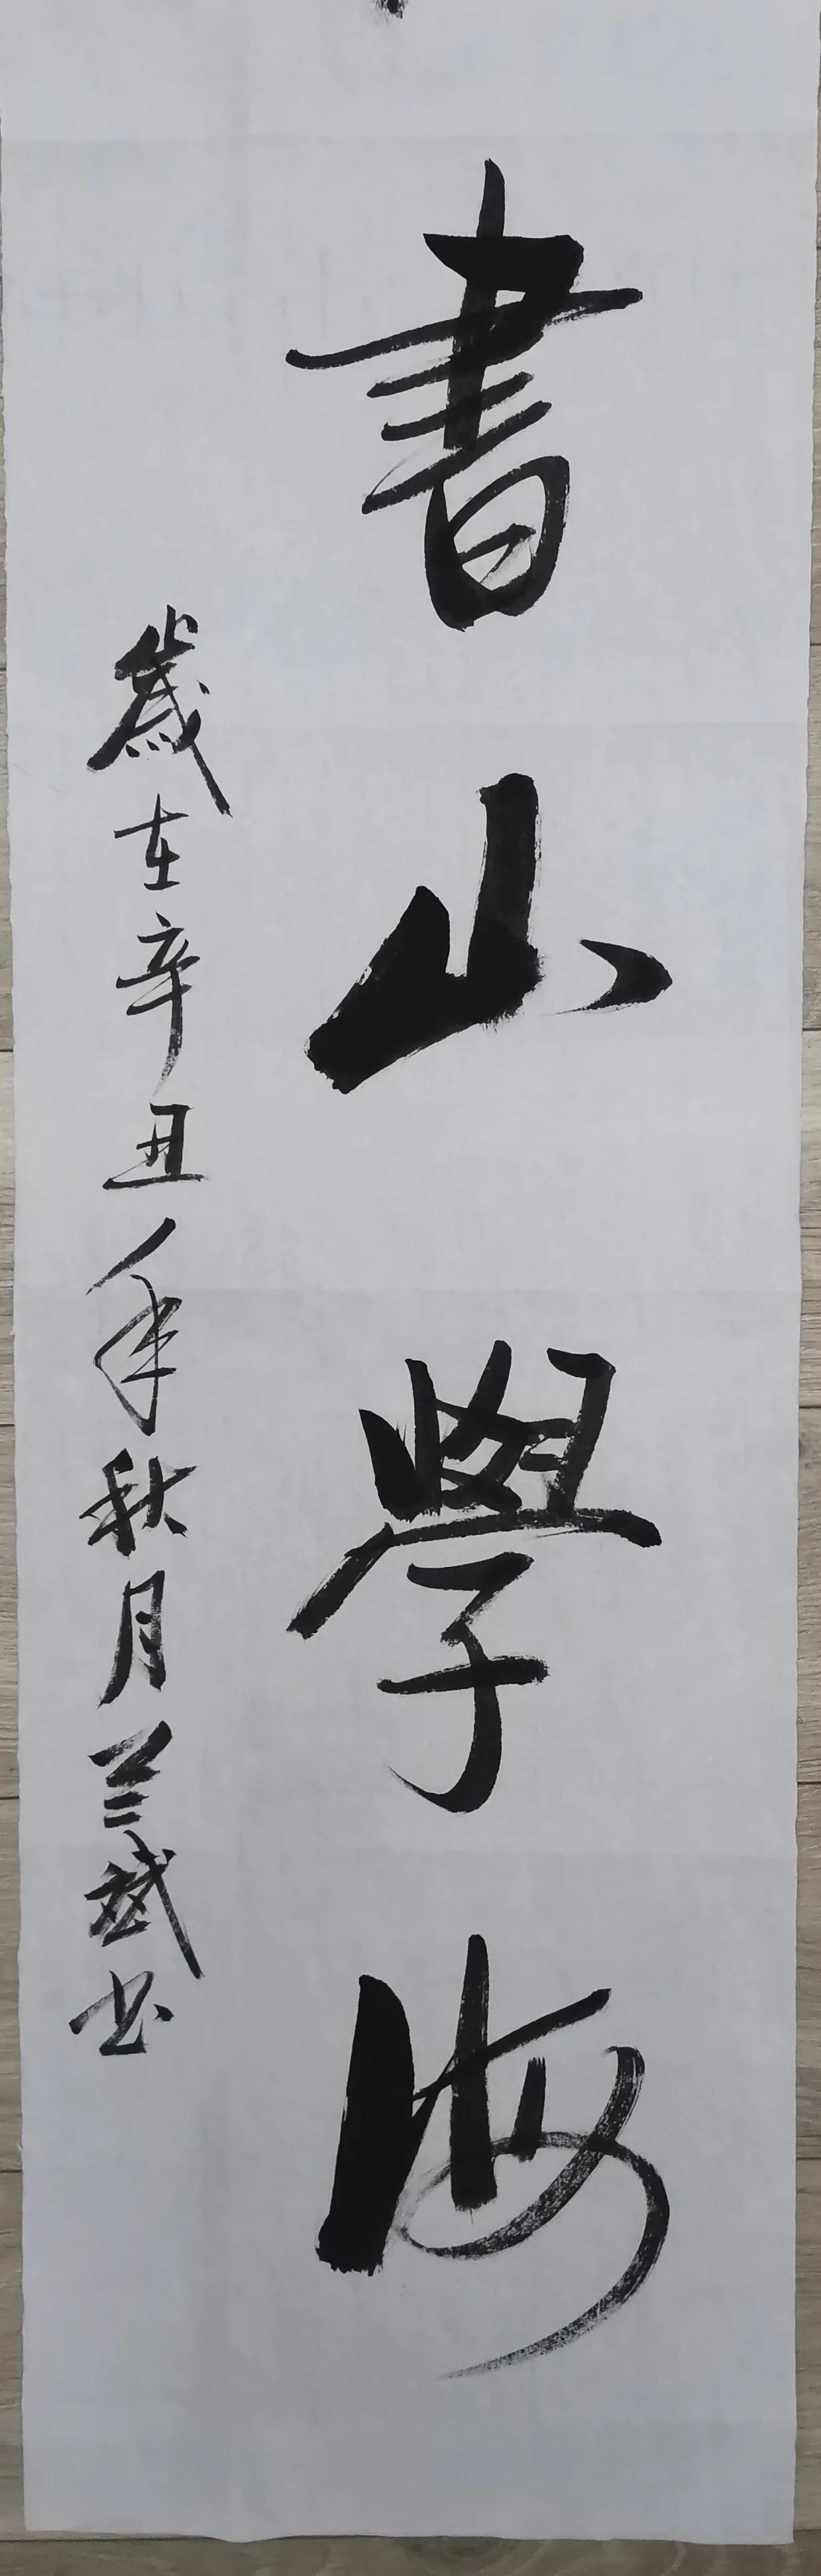 書山學海
歲在辛丑年秋月兰斌书